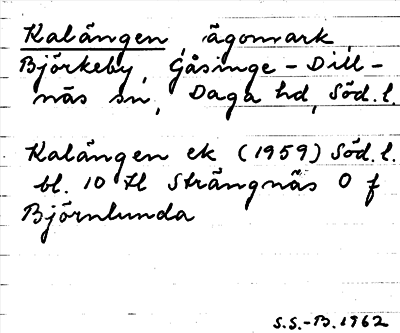 Kalängen, ägomark,
Björkeby, Gåsinge-Dill-
näs sn, Daga hd, Söd.l.
Kalängen ek (1959) Söd.l.
bl. 10 Strängnäs O f
Björnlunda
S.S.-B. 1962